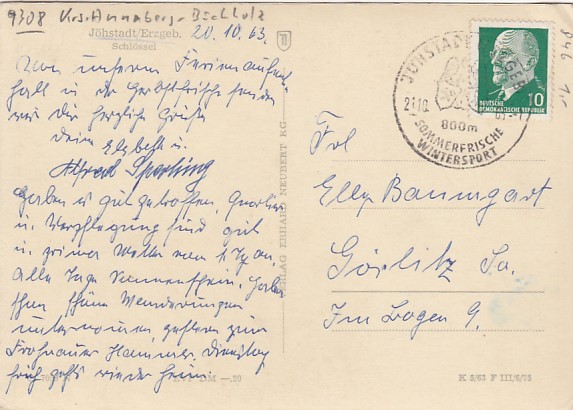 9308 Krs. Annaberg-Buchholz
Jöhstadt/Erzgeb. 20.10.63.
Schlössel
Von unserem Ferienaufent
halt in der Herbstfrische senden
wir dir herzliche Grüße
deine Elsbeth u.
Alfred Sperling
Haben es gut getroffen, Quartier
u. Verpflegung sind gut
u. prima Wetter vom 1. Tg an.
Alle Tage Sonnenschein. Haben
schon schöne Wanderungen
unternommen, gestern zum
Frohnauer Hammer. Dienstag
früh geht's wieder heim.
DM —.20
VERLAG ERHARD NEUBERT KG
JÖHSTADT
21.10.
800m
SOMMERFRISCHE
WINTERSPORT
DEUTSCHE
DEMOKRATISCHE REPUBLIK
10
Frl
Elly Baumgart
Görlitz Sa.
Im Bogen 9.
K 3/63 F III/6/75